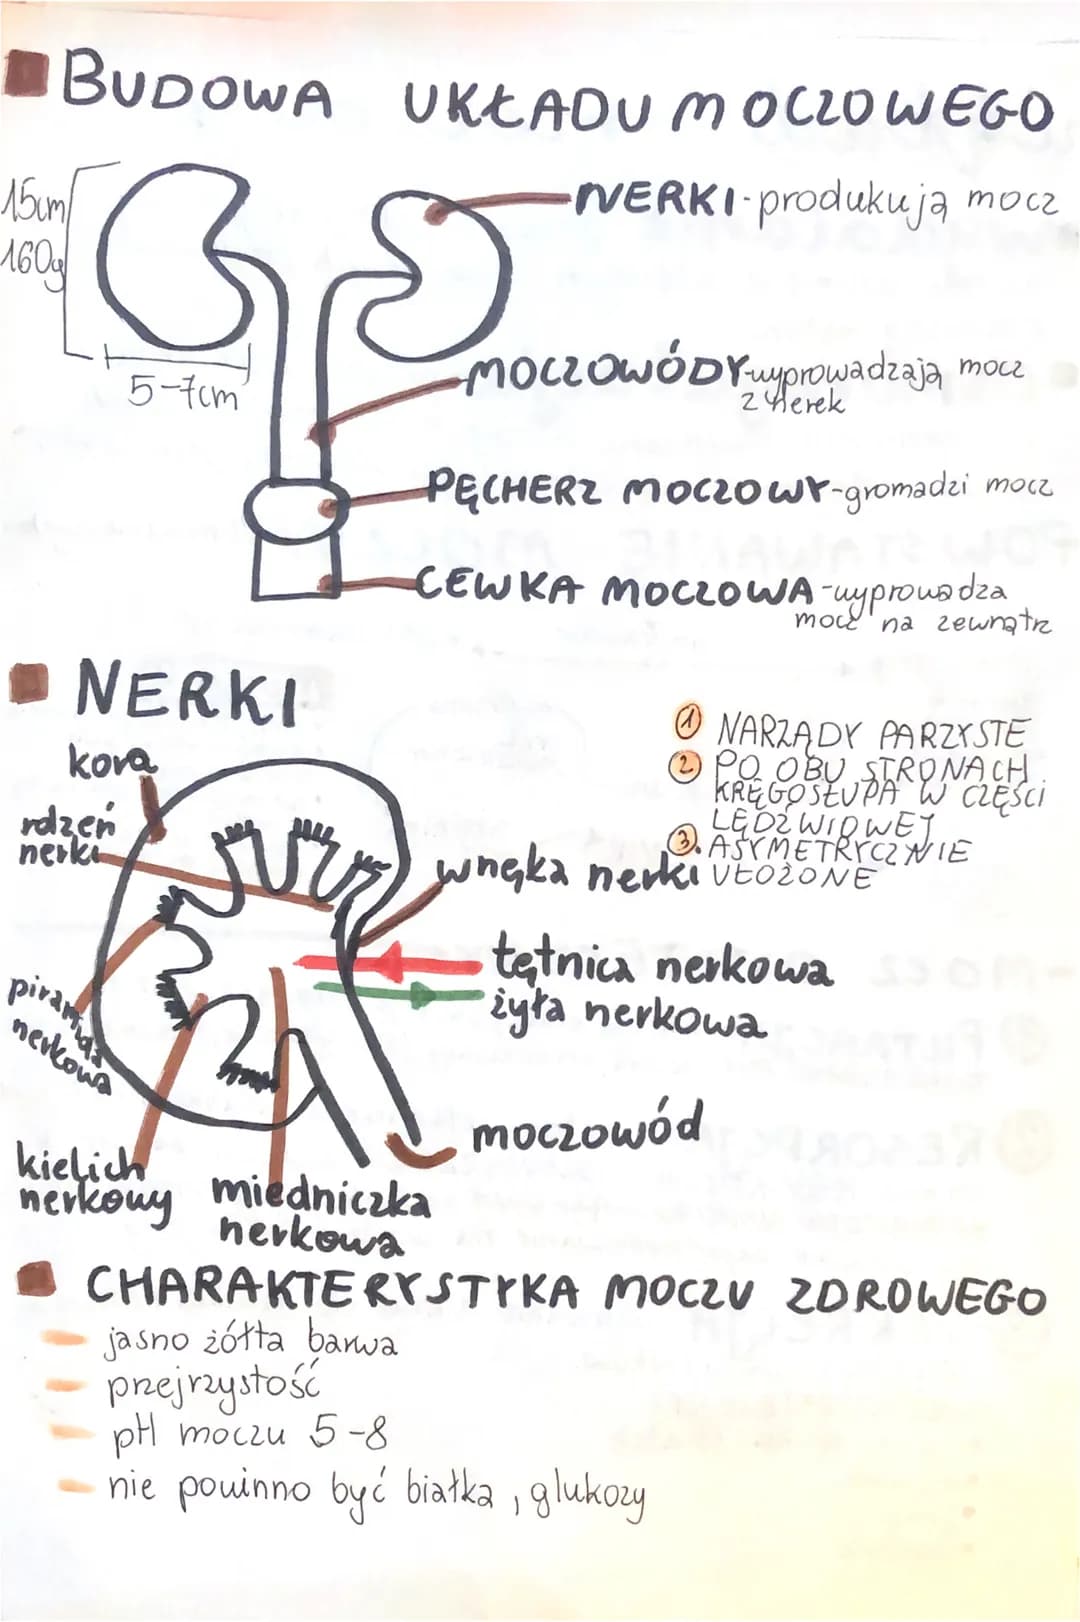 BUDOWA UKŁADU MOCZOWEGO
15cm
160g
5-7cm
NERKI-produkują mocz
MOCZOWÓDY-wyprowadzają mocz
z nerek
PĘCHERZ MOCZOWY-gromadzi mocz
CEWKA MOCZOWA-wyprowadza
mocz na zewnątrz
NERKI
① NARZĄDY PARZYSTE
② PO OBU STRONACH
KRĘGOSŁUPA W CZĘŚCI
LĘDŹWIOWEJ
③. ASYMETRYCZNIE
UŁOŻONE
kora
rdzeń
nerki
wnęka nerki
tętnica nerkowa
żyła nerkowa
piramida
nerkowa
moczowód
kielich
nerkowy
miedniczka
nerkowa
CHARAKTERYSTYKA MOCZU ZDROWEGO
- jasno żółta barwa
- przejrzystość
- pH moczu 5-8
- nie powinno być białka, glukozy